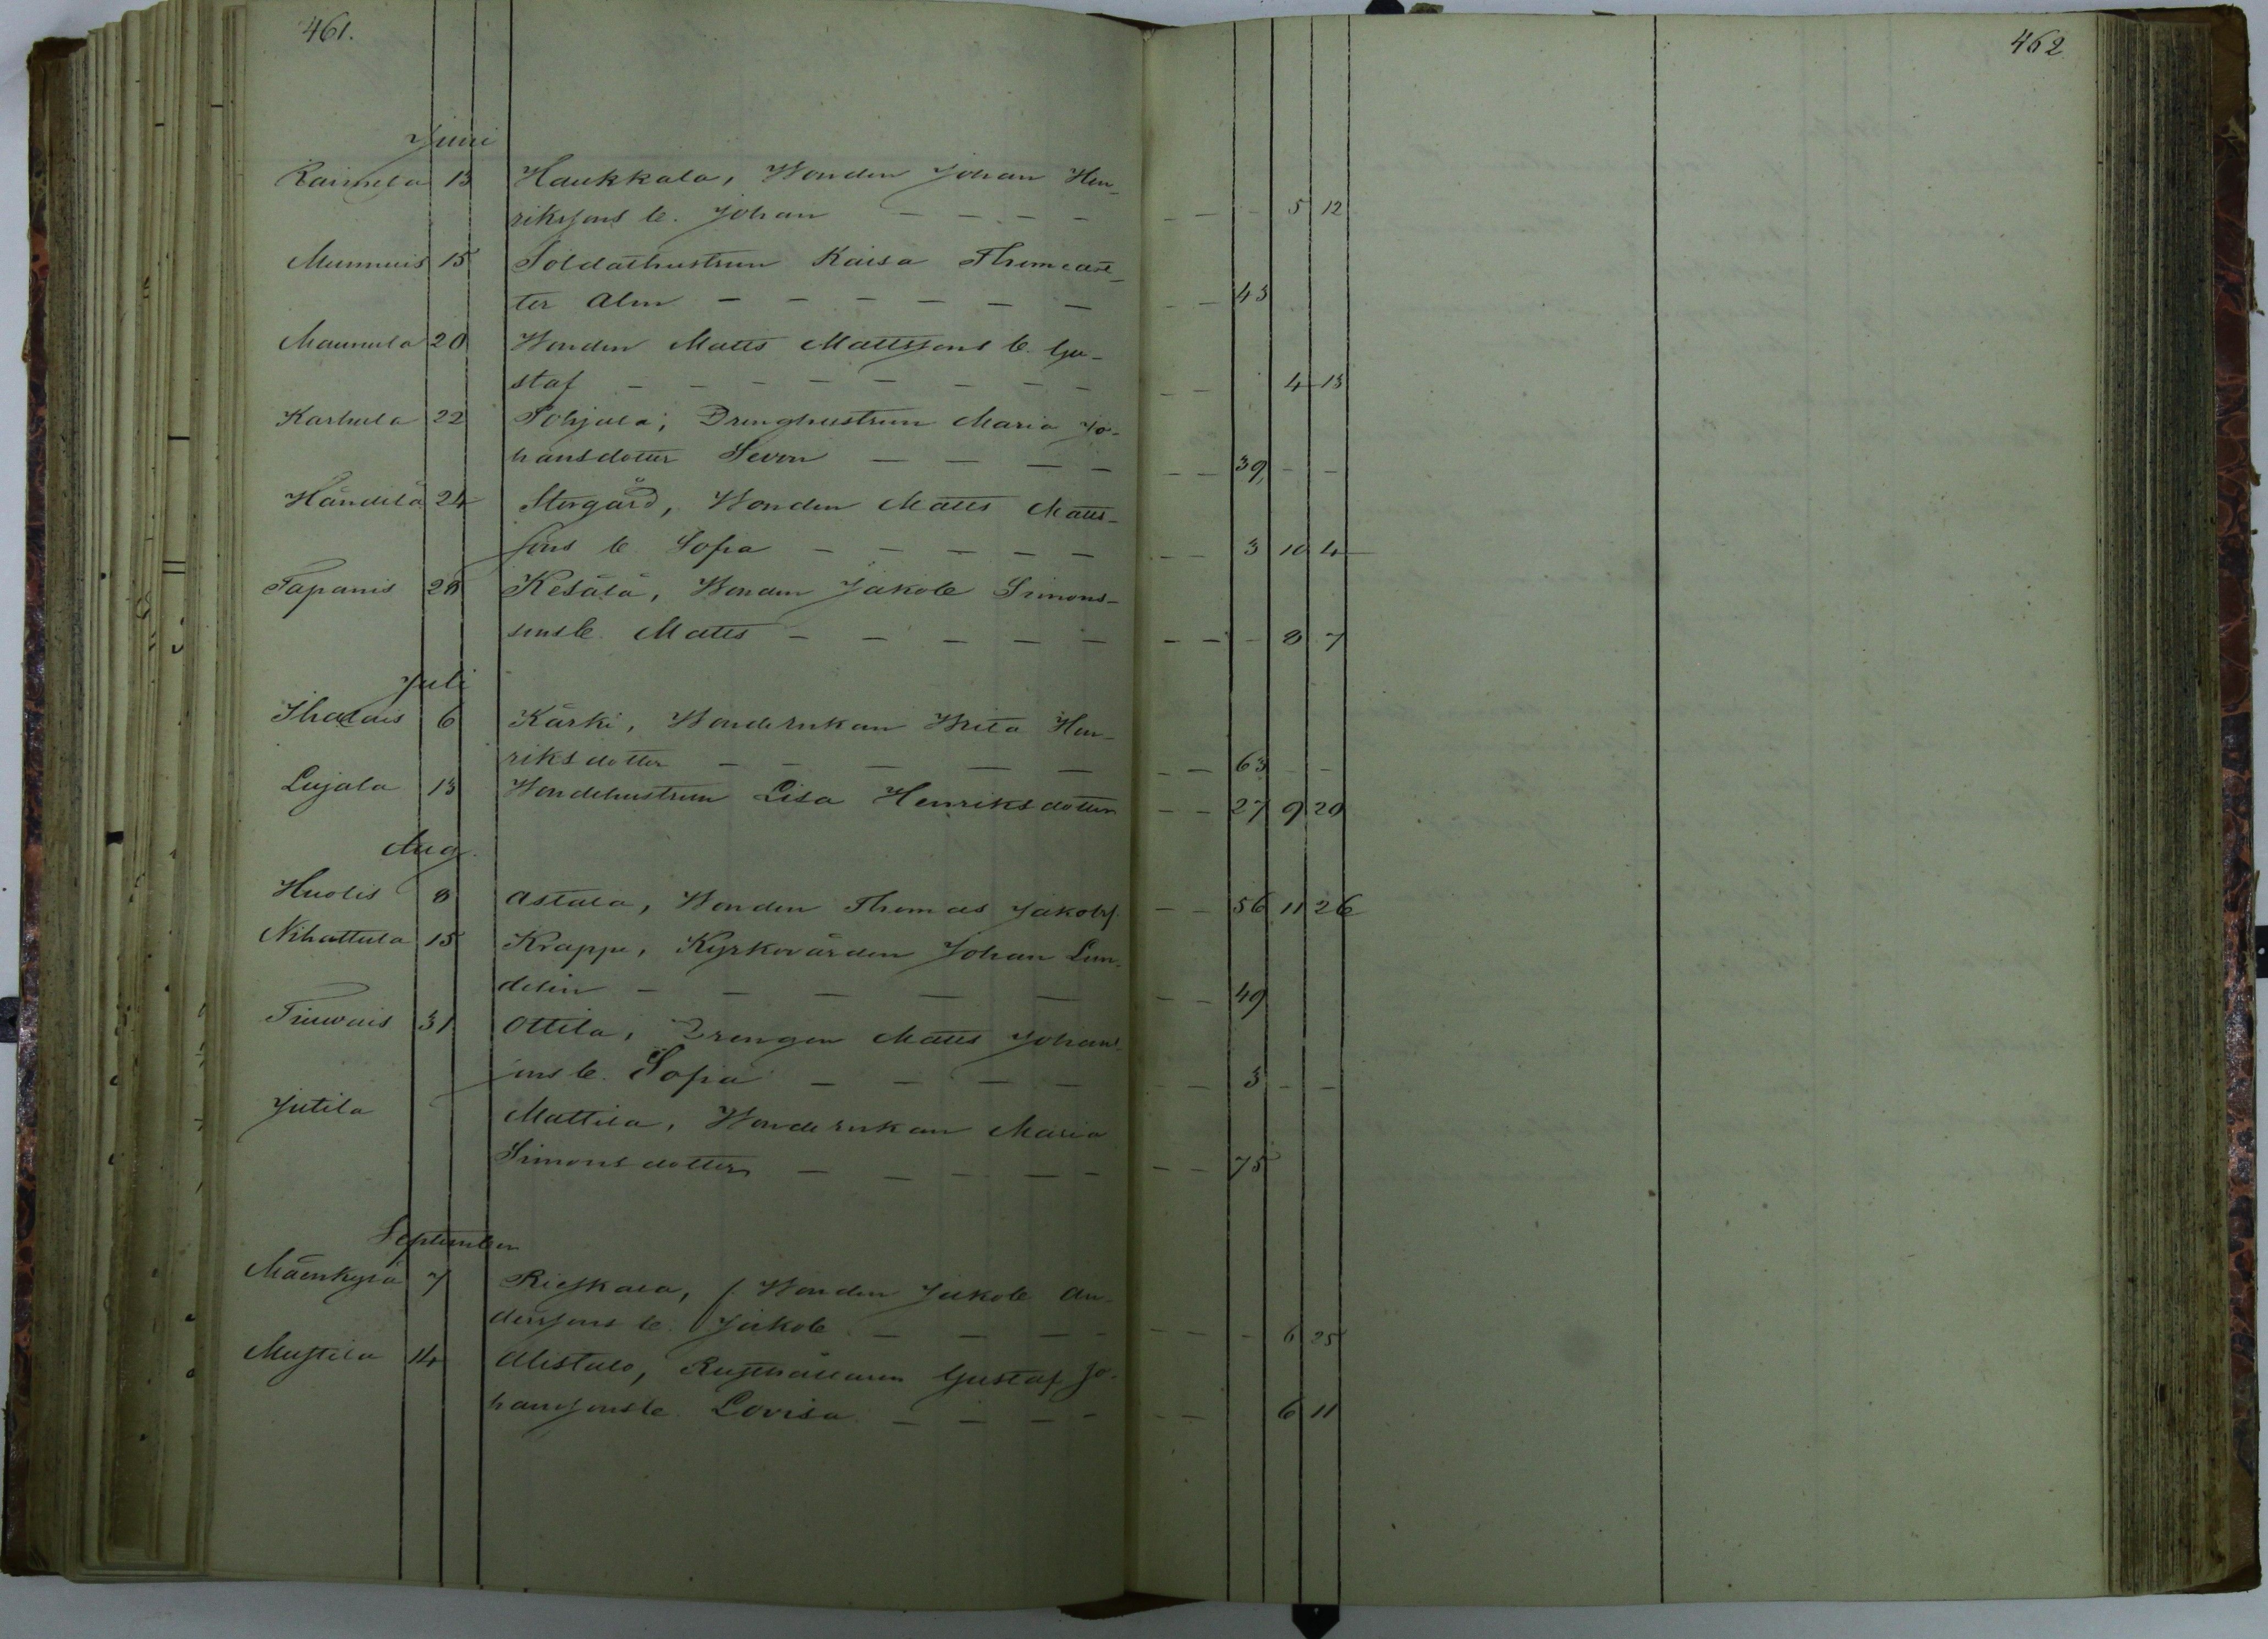 461.
462
Juni
Raimela 13 Haukkala, Bonden Johan Hen-
riksons b. Johan — — — — — — — 5 12
Munnuis 15 Soldathustrun Kaisa Thomædt-
ter Alm — — — — — — — — 43
Maunula 20 Bonden Matts Mattssons b. Gu-
staf — — — — — — — — — — 4 13
Karhula 22 Pohjala, Drenghustrun Maria Jo-
hansdotter Sevon — — — — — — 39 — —
Händilä 24 Storgård, Bonden Matts Matts-
sons b. Sofia — — — — — — — 3 10 4
Tapanis 28 Kesälä, Bonden Jakob Simons-
sons b. Matts — — — — — — — — 8 7
Juli
Ihalais 6 Kärki, Bondeenkan Brita Hen-
riksdotter — — — — — — — 63 — —
Lujala 13 Bondehustrun Lisa Henriksdotter — — 27 9 20
Aug.
Huolis 8 Astala, Bonden Thomas Jakobs. — — 56 11 26
Nihattula 15 Krappe, Kyrkovärden Johan Lun-
delin — — — — — — — 49
Tiuwais 31 Ottila, Drengen Matts Johans-
sons b. Sofia — — — — — — 3 — —
Jutila Mattila, Bondeenkan Maria
Simonsdotter — — — — — — — 75
September
Mäenkylä 7 Rieskala, f. Bonden Jakob An-
derssons b. Jakob — — — — — — — 6 25
Mustila 14 Alistalo, Rusthållaren Gustaf Jo-
hanssons b. Lovisa — — — — — — 6 11